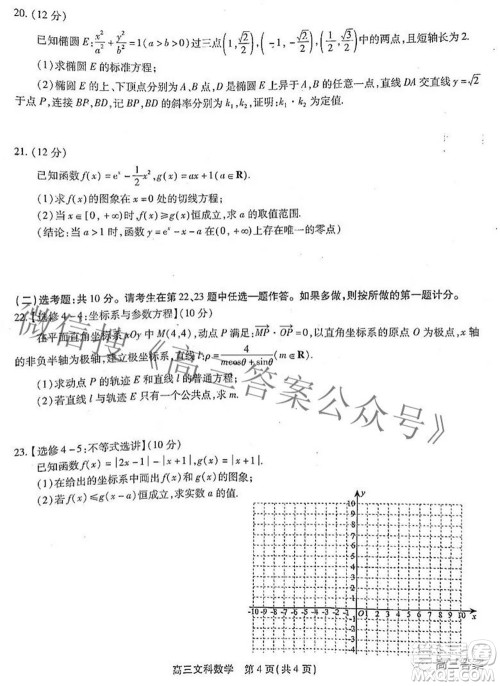 20. (12 分)
已知椭圆 E: x²/a² + y²/b² = 1(a > b > 0) 过三点 (1, √2/2), (-1, -√2/2), (1/2, √3/2) 中的两点, 且短轴长为 2.
(1)求椭圆 E 的标准方程;
(2)椭圆 E 的上、下顶点分别为 A、B 点, D 点是椭圆 E 上异于 A、B 的任意一点, 直线 DA 交直线 y = √2
于点 P, 连接 BP, 记 BP、DA 的斜率分别为 k₁, k₂, 证明: k₁ · k₂ 为定值.
21. (12 分)
已知函数 f(x) = eˣ - 1/2 x², g(x) = ax + 1(a∈R).
(1)求 f(x) 的图象在 x = 0 处的切线方程;
(2)当 x∈[0, +∞) 时, f(x) ≥ g(x) 恒成立, 求 a 的取值范围.
(结论: 当 a > 1 时, 函数 y = eˣ - x - a 在 (0, +∞) 上存在唯一的零点)
(二)选考题: 共 10 分。请考生在第 22、23 题中任选一题作答。如果多做, 则按所做的第一题计分。
22.【选修 4 - 4: 坐标系与参数方程】(10 分)
在平面直角坐标系 xOy 中 M(4,4), 动点 P 满足: MP · OP = 0. 以直角坐标系的原点为极点, x 轴
的非负半轴为极轴, 建立极坐标系, 直线 l: ρ = 4/(mcosθ + sinθ) (m∈R).
(1)求动点 P 的轨迹和直线 l 的普通方程;
(2)若直线 l 与轨迹只有一个公共点, 求 m 的值.
23.【选修 4 - 5: 不等式选讲】(10 分)
已知函数 f(x) = |2x - 1| - |x + 1|, g(x) = |x + 1|.
(1)在给出的坐标系中画出 f(x) 和 g(x) 的图象;
(2)若 f(x) ≤ g(x - a) 恒成立, 求实数 a 的值.
y
10
9
8
7
6
5
4
3
2
1
-10 -9 -8 -7 -6 -5 -4 -3 -2 -1 O 1 2 3 4 5 6 7 8 9 10 x
高三文科数学 第 4 页(共 4 页)
微信搜《高三答案公众号》
高三答案